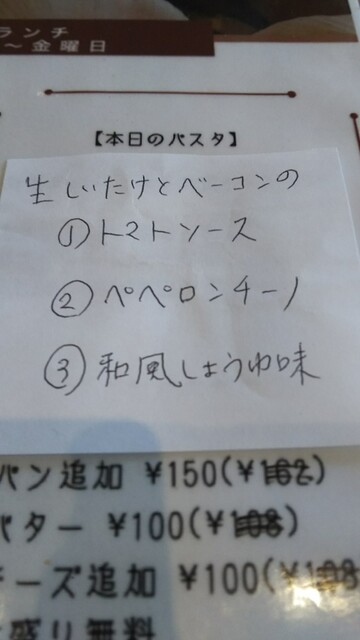 ランチ
～金曜日
【本日のパスタ】
生しいたけとベーコンの
①トマトソース
②ペペロンチーノ
③和風しょうゆ味
パン追加 ¥150(¥162)
バター ¥100(¥108)
チーズ追加 ¥100(¥108
盛り無料